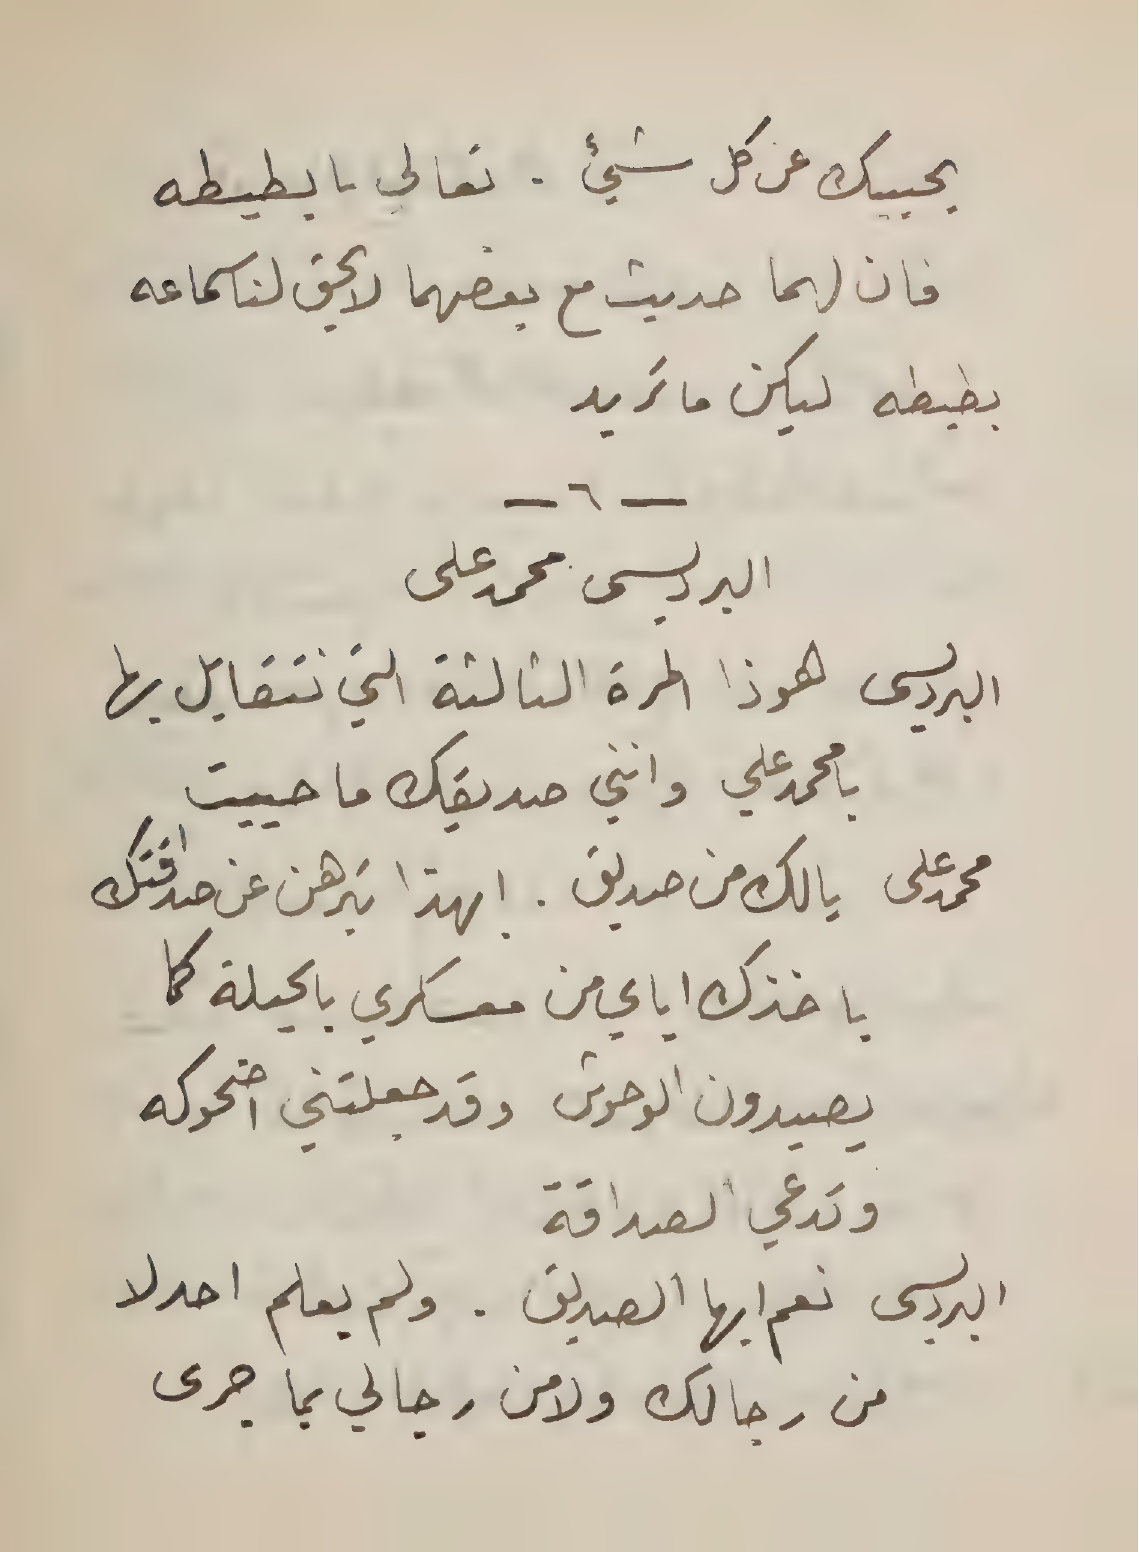 يجيبك عن كل شيئ . تعالي يا بطيطه
فان لهما حديث مع بعضهما لا يحق لنا سماعه
بطيطه ليكن ما تريد
— ٦ —
البرديسى محمد على
البرديسى هوذا المرة الثالثة التي نتقابل بها
يا محمد علي وانني صديقك ما حييت
محمد على يا لك من صديق . ابهذا تبرهن عن صداقتك
باخذك اياي من معسكري بالحيلة كما
يصيدون الوحوش وقد جعلتني اضحوكه
وتدعي الصداقة
البرديسى نعم ايها الصديق . ولم يعلم احد لا
من رجالك ولا من رجالي بما جرى